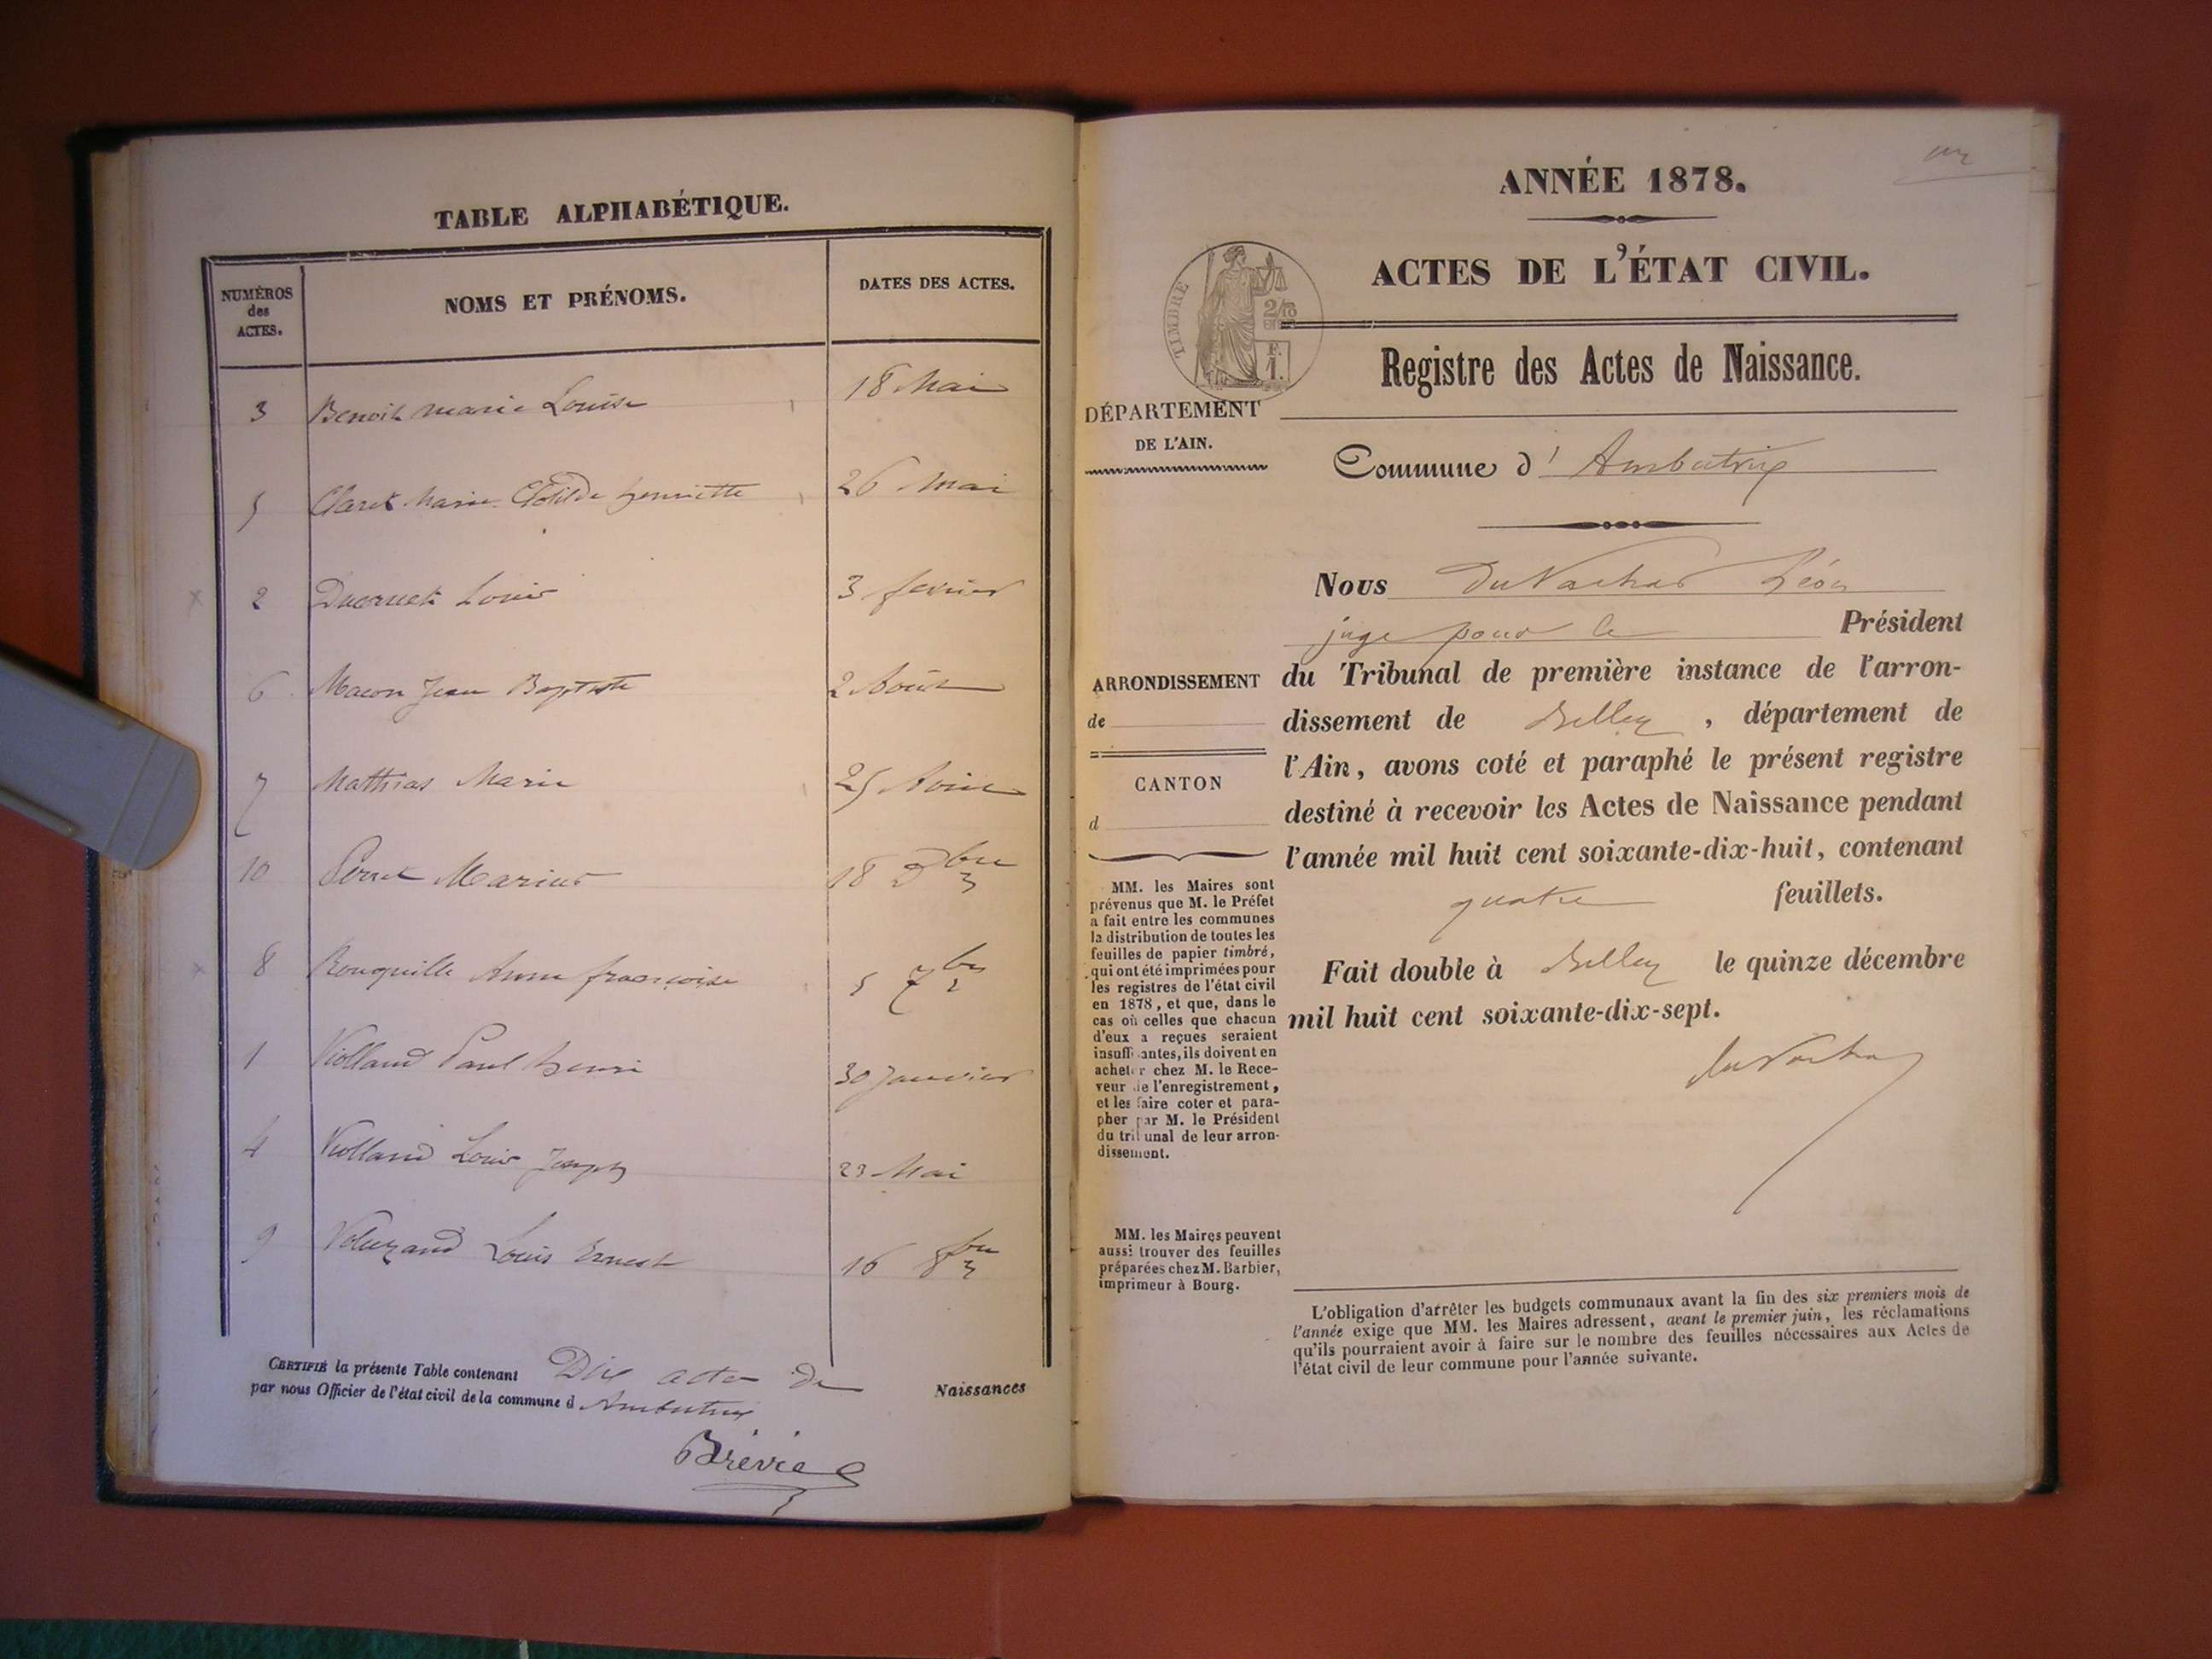 TABLE ALPHABÉTIQUE.
NUMÉROS
des
ACTES.
NOMS ET PRÉNOMS.
DATES DES ACTES.
3 Benoit marie Louise 18 Mai
5 Claret Marie Clotilde henriette 26 Mai
2 Ducruet Louis 3 fevrier
6 Macon Jean Baptiste 2 Août
7 Mathias Marie 25 Août
10 Perret Marius 18 Xbre
8 Anne françoise 5 7bre
1 Violland Paul henri 30 Janvier
4 Violland Louis Joseph 23 Mai
9 Voluzand Louis Ernest 16 8bre
CERTIFIÉ la présente Table contenant Dix actes de Naissances
par nous Officier de l'état civil de la commune d Ambutrix
ANNÉE 1878.
ACTES DE L'ÉTAT CIVIL.
TIMBRE
2/10
EN SUS
F.
1.
Registre des Actes de Naissance.
DÉPARTEMENT
DE L'AIN.
Commune d' Ambutrix
Nous Du Vachat Léon
juge pour le Président
du Tribunal de première instance de l'arron-
dissement de Belley, département de
l'Ain, avons coté et paraphé le présent registre
destiné à recevoir les Actes de Naissance pendant
l'année mil huit cent soixante-dix-huit, contenant
quatre feuillets.
Fait double à Belley le quinze décembre
mil huit cent soixante-dix-sept.
du Vachat
ARRONDISSEMENT
de
CANTON
d
MM. les Maires sont
prévenus que M. le Préfet
a fait entre les communes
la distribution de toutes les
feuilles de papier timbré,
qui ont été imprimées pour
les registres de l'état civil
en 1878, et que, dans le
cas où celles que chacun
d'eux a reçues seraient
insuffisantes, ils doivent en
acheter chez M. le Rece-
veur de l'enregistrement,
et les faire coter et para-
pher par M. le Président
du tribunal de leur arron-
dissement.
MM. les Maires peuvent
aussi trouver des feuilles
préparées chez M. Barbier,
imprimeur à Bourg.
L'obligation d'arrêter les budgets communaux avant la fin des six premiers mois de
l'année exige que MM. les Maires adressent, avant le premier juin, les réclamations
qu'ils pourraient avoir à faire sur le nombre des feuilles nécessaires aux Actes de
l'état civil de leur commune pour l'année suivante.